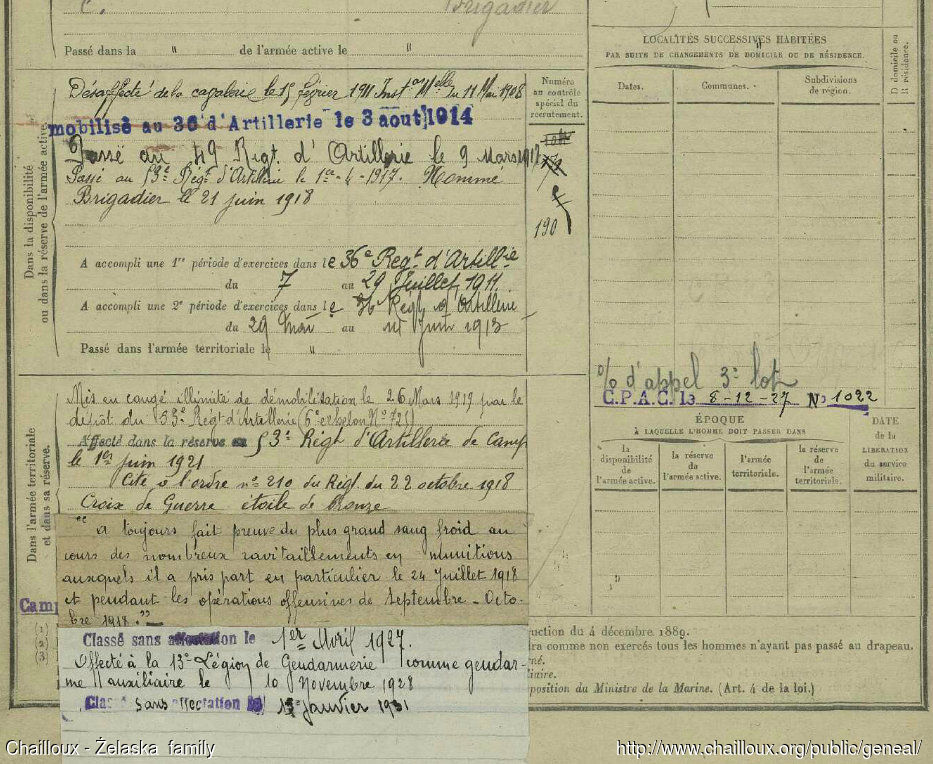 Brigadier
Passé dans la " de l'armée active le "
Désaffecté de la cavalerie le 15 février 1911 Inst. on Melle du 11 Mai 1908
mobilisé au 36 d'Artillerie le 3 aout 1914
Passé au 49 Regt. d'Artillerie le 9 mars 1917
Passé au 53e Régt d'Artillerie le 1er-4-1917. Nommé
Brigadier le 21 juin 1918
Dans la disponibilité
ou dans la réserve de l'armée active.
A accompli une 1re période d'exercices dans le 36e Regt d'Artillie
du 7 au 29 Juillet 1911.
A accompli une 2e période d'exercices dans le 36 Regt d'Artillerie
du 29 mai au 14 Juin 1913
Passé dans l'armée territoriale le "
Numéro
au contrôle
spécial du
recrutement.
190
LOCALITÉS SUCCESSIVES HABITÉES
PAR SUITE DE CHANGEMENTS DE DOMICILE OU DE RÉSIDENCE.
Dates.
Communes.
Subdivisions
de région.
D domicile ou
R résidence.
Mis en congé illimité de démobilisation le 26 Mars 1919 par le
dépôt du 53e Régt d'Artillerie (6e échelon No 721)
Affecté dans la réserve au 53e Régt d'Artillerie de Camp
le 1er juin 1921
Cité à l'ordre no 210 du Regt du 22 octobre 1918
Croix de Guerre étoile de bronze
"a toujours fait preuve du plus grand sang froid au
cours des nombreux ravitaillements en munitions
auxquels il a pris part en particulier le 24 Juillet 1918
et pendant les opérations offensives de Septembre - Octo-
bre 1918."
Dans l'armée territoriale
et dans sa réserve.
Camp
(1)
(2)
(3)
Classé sans affectation le 1er Avril 1927.
Affecté à la 13e Légion de Gendarmerie comme gendar-
me auxiliaire le 10 Novembre 1928
Classé sans affectation le 15 Janvier 1931
% d'appel 3e lot
C.P.A.C. 13 8-12-27 No 1022
ÉPOQUE
À LAQUELLE L'HOMME DOIT PASSER DANS
la
disponibilité
de
l'armée active.
la réserve
de
l'armée active.
l'armée
territoriale.
la réserve
de
l'armée
territoriale.
DATE
de la
LIBÉRATION
du service
militaire.
uction du 4 décembre 1889.
ira comme non exercés tous les hommes n'ayant pas passé au drapeau.
né.
liaire.
position du Ministre de la Marine. (Art. 4 de la loi.)
Chailloux - Żelaska family
http://www.chailloux.org/public/geneal/